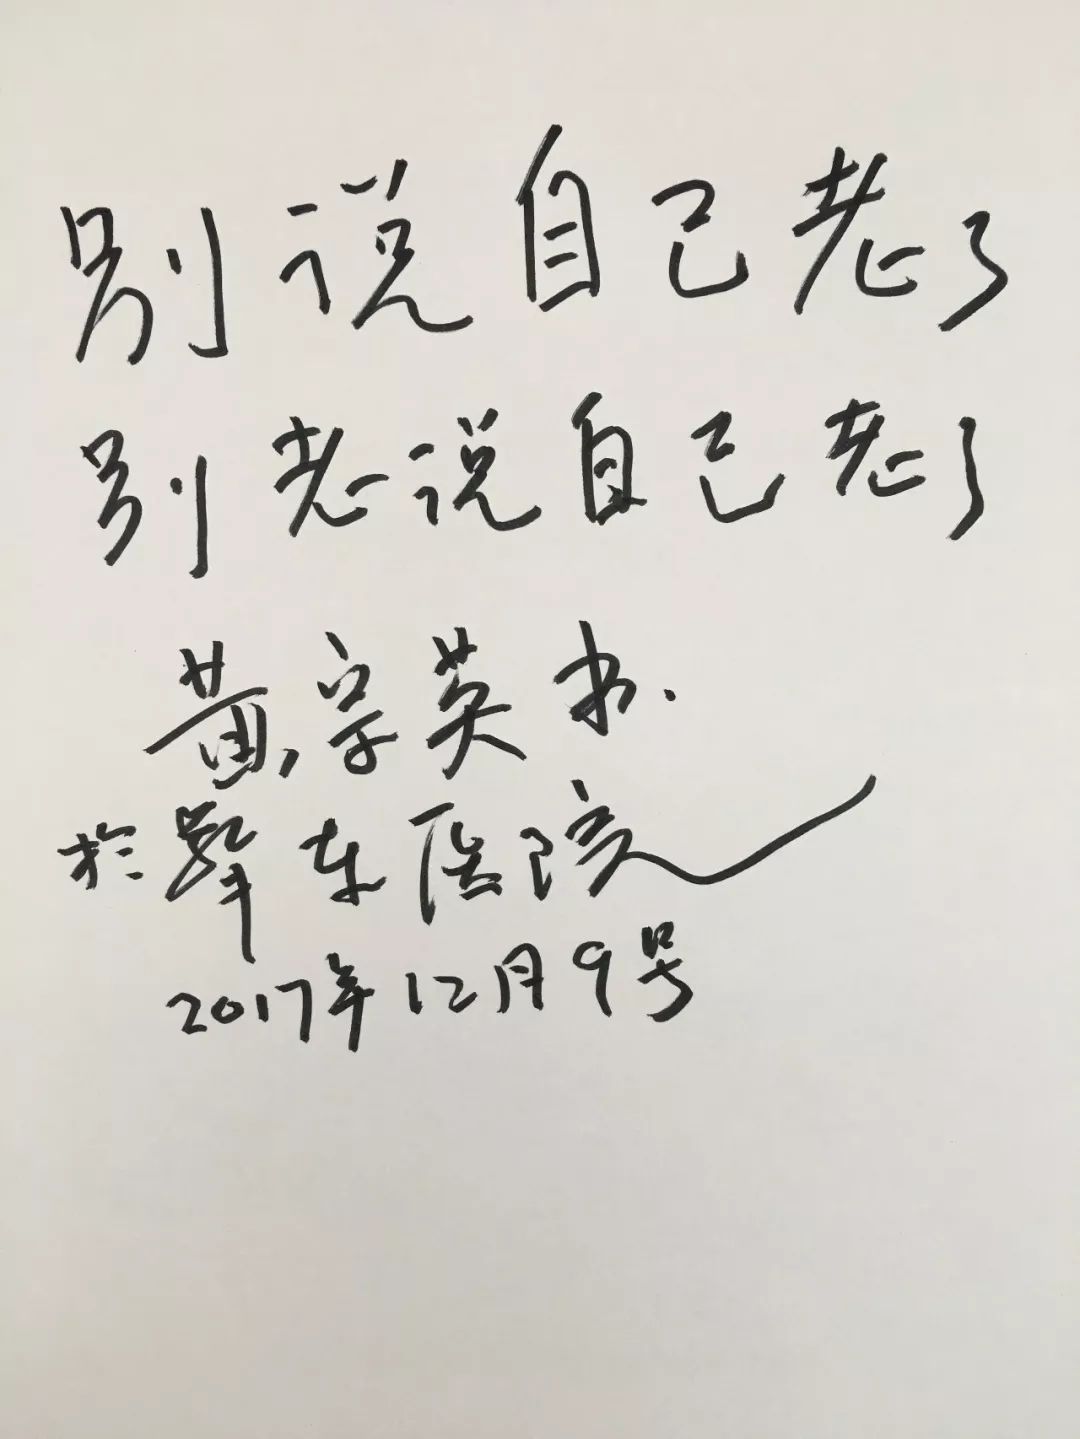 别说自己老了
别老说自己老了
黄宗英书.
于华东医院
2017年12月9号